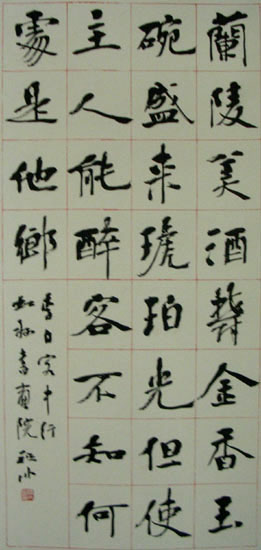 蘭陵美酒鬱金香玉
碗盛来琥珀光但使
主人能醉客不知何
處是他鄉
李白客中行
書畫院